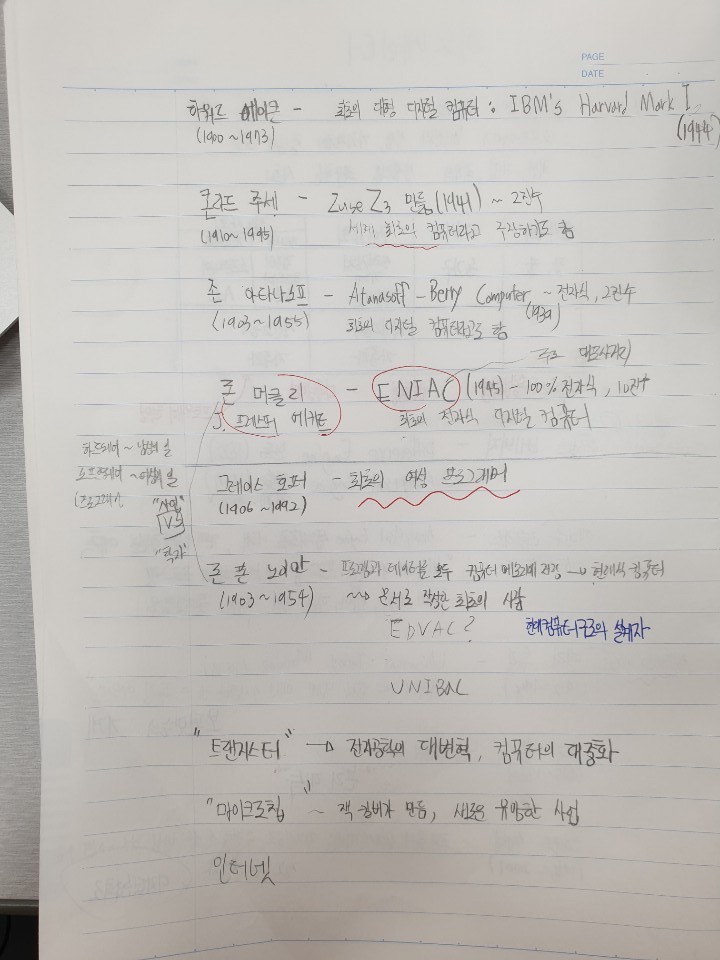 PAGE
DATE
하워드 에이큰 - 최초의 대형 디지털 컴퓨터 : IBM's Harvard Mark I
(1900 ~ 1973) (1944)
콘라드 주세 - Zuse Z3 만듦 (1941) ~ 2진수
(1910 ~ 1995) 세계 최초의 컴퓨터라고 주장하기도 함
존 아타나소프 - Atanasoff - Berry Computer ~ 전자식, 2진수
(1903 ~ 1955) 최초의 디지털 컴퓨터라고도 함 (1939)
주로 대포사거리
존 머클리 - ENIAC (1945) - 100% 전자식, 10진수
J. 프레스퍼 에커트 최초의 전자식 디지털 컴퓨터
하드웨어 ~ 남성의 일
소프트웨어 ~ 여성의 일
(프로그래머
그레이스 호퍼 - 최초의 여성 프로그래머
(1906 ~ 1992)
"사업"
VS
"학자"
존 폰 노이만 - 프로그램과 데이터를 모두 컴퓨터 메모리에 저장 → 현대식 컴퓨터
(1903 ~ 1954) ~> 문서로 작성한 최초의 사람
EDVAC? 현대 컴퓨터 구조의 설계자
UNIBAC
"트랜지스터" → 전자공학의 대변혁, 컴퓨터의 대중화
"마이크로칩" ~ 잭 킬비가 만듦, 새로운 유망한 사업
인터넷